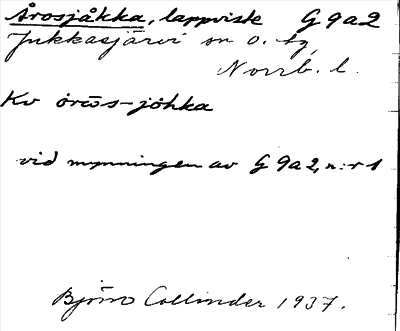 Årosjåkka, lappviste G 9 a 2
Jukkasjärvi sn o. tg,
Norrb. l.
Kv òrōs-jòhka
vid mynningen av G 9 a 2, n:r 1
Björn Collinder 1937.